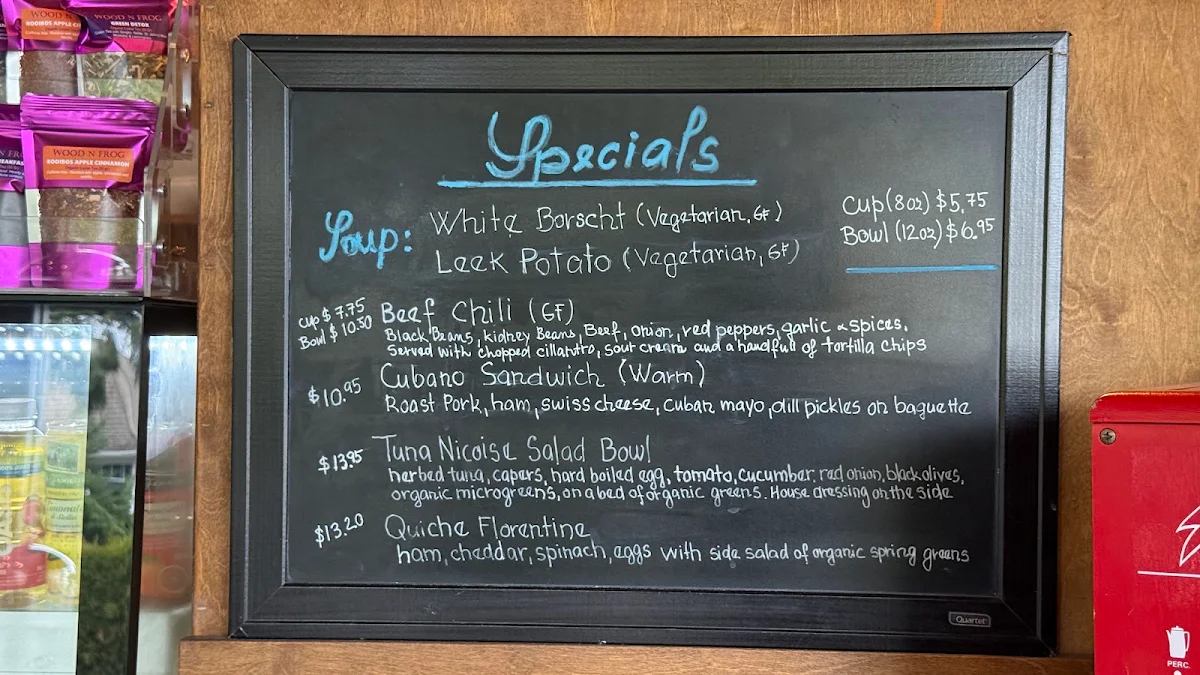 WOOD N FROG
ROOIBOS APPLE CI
WOOD N FROG
GREEN DETOX
WOOD N FROG
ROOIBOS APPLE CINNAMON
Specials
Soup:
White Borscht (Vegetarian, GF)
Leek Potato (Vegetarian, GF)
Cup (8oz) $5.75
Bowl (12oz) $6.95
cup $7.75
Bowl $10.50
Beef Chili (GF)
Black Beans, kidney Beans, Beef, onion, red peppers, garlic & spices.
Served with chopped cillantro, sour cream and a handfull of tortilla chips
$10.95
Cubano Sandwich (Warm)
Roast Pork, ham, swiss cheese, cuban mayo, dill pickles on baguette
$13.95
Tuna Nicoise Salad Bowl
herbed tuna, capers, hard boiled egg, tomato, cucumber, red onion, black olives,
organic microgreens, on a bed of organic greens. House dressing on the side
$13.20
Quiche Florentine
ham, cheddar, spinach, eggs with side salad of organic spring greens
Quartet
PERC.